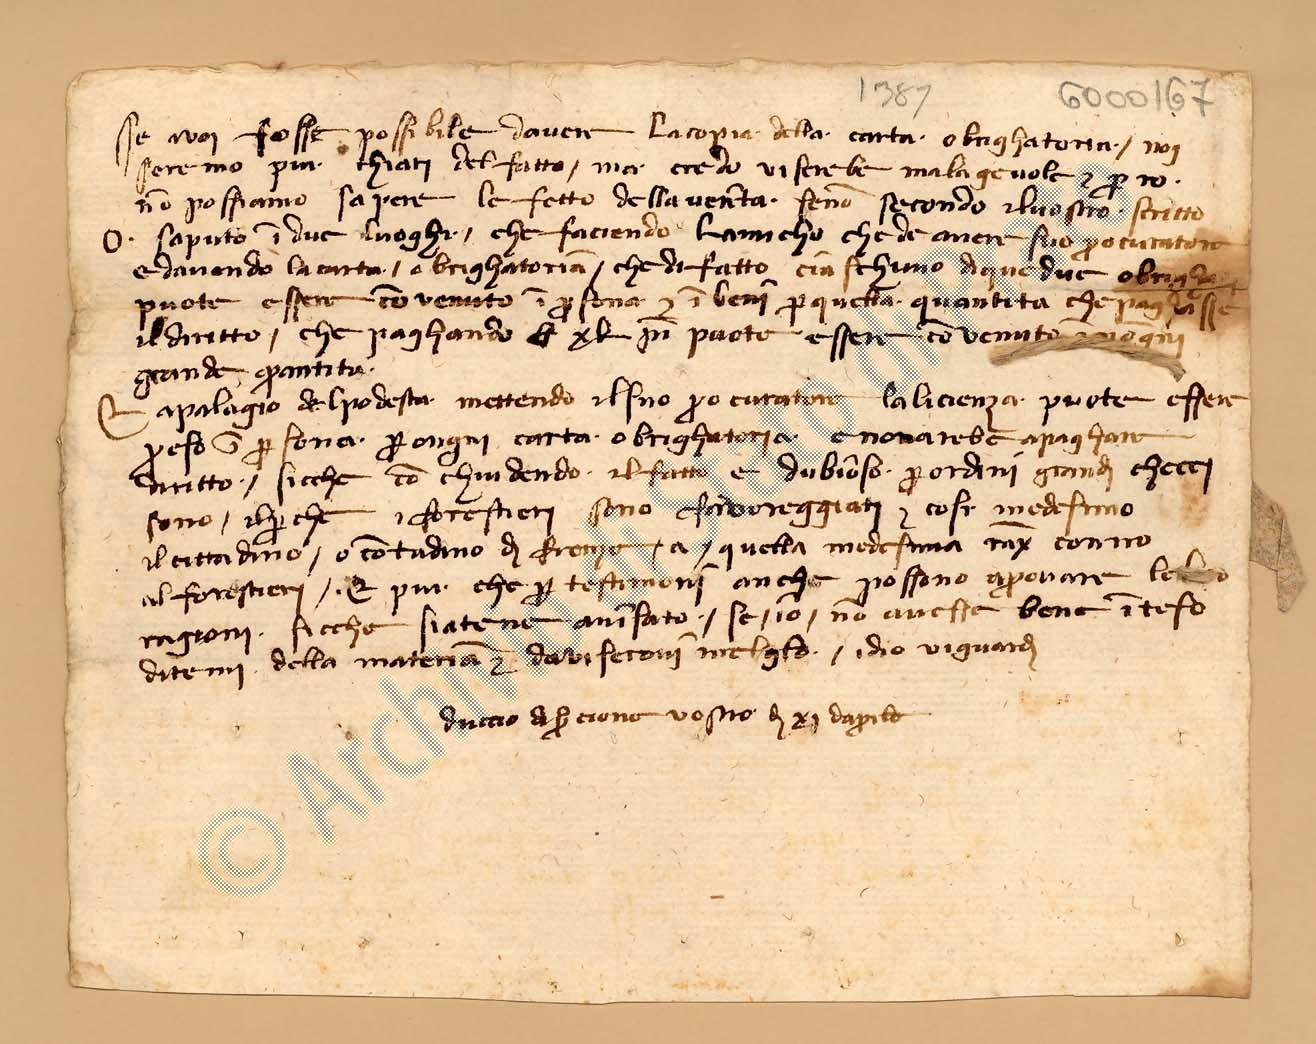 1387 6000167
Se voi fosse possibile davere la copia della carta obrighatoria / noi
saremo più chiari del fatto / ma credo vi serebe malagevole ⁊ però
nō possiamo sapere leffetto della verita senō secondo il vostro scritto
O saputo ī due luoghi / che faciendo lamicho che de avere suo procuratore
e davendo la carta / obrighatoria / che di fatto ciaschuno di que due obrighati
puote essere cōvenuto ī persona ⁊ ī beni per quella quantita che paghasse
il diritto / che paghando puote essere cōvenuto
grande quantita
E a palagio del podesta mettendo il suo procuratore la licienza puote essere
preso ī persona per ongni carta obrighatoria e no narebe a paghare
diritto / sicche cōchiudendo il fatto e dubioso per ordini grandi checci
sono / il perche i forestieri sono favoreggiati ⁊ cosi medesimo
il cittadino / o cōtadino di firenze / a quella medesima
al forestieri / E piu che per testimoni anche possono aprovare le loro
ragioni sicche siatene avisato / se / io / nō avesse bene īteso
ditemi della materia ⁊ davisероvi melglo / idio vi guardi
duccio vostro di xi daprile
© Archivio di Stato di Prato